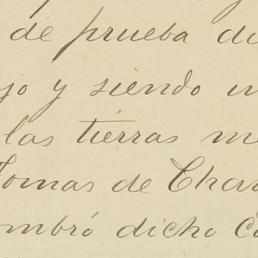 de prueba di
jo y siendo
las tierras me
Tomas de Char
ombró dicho Co